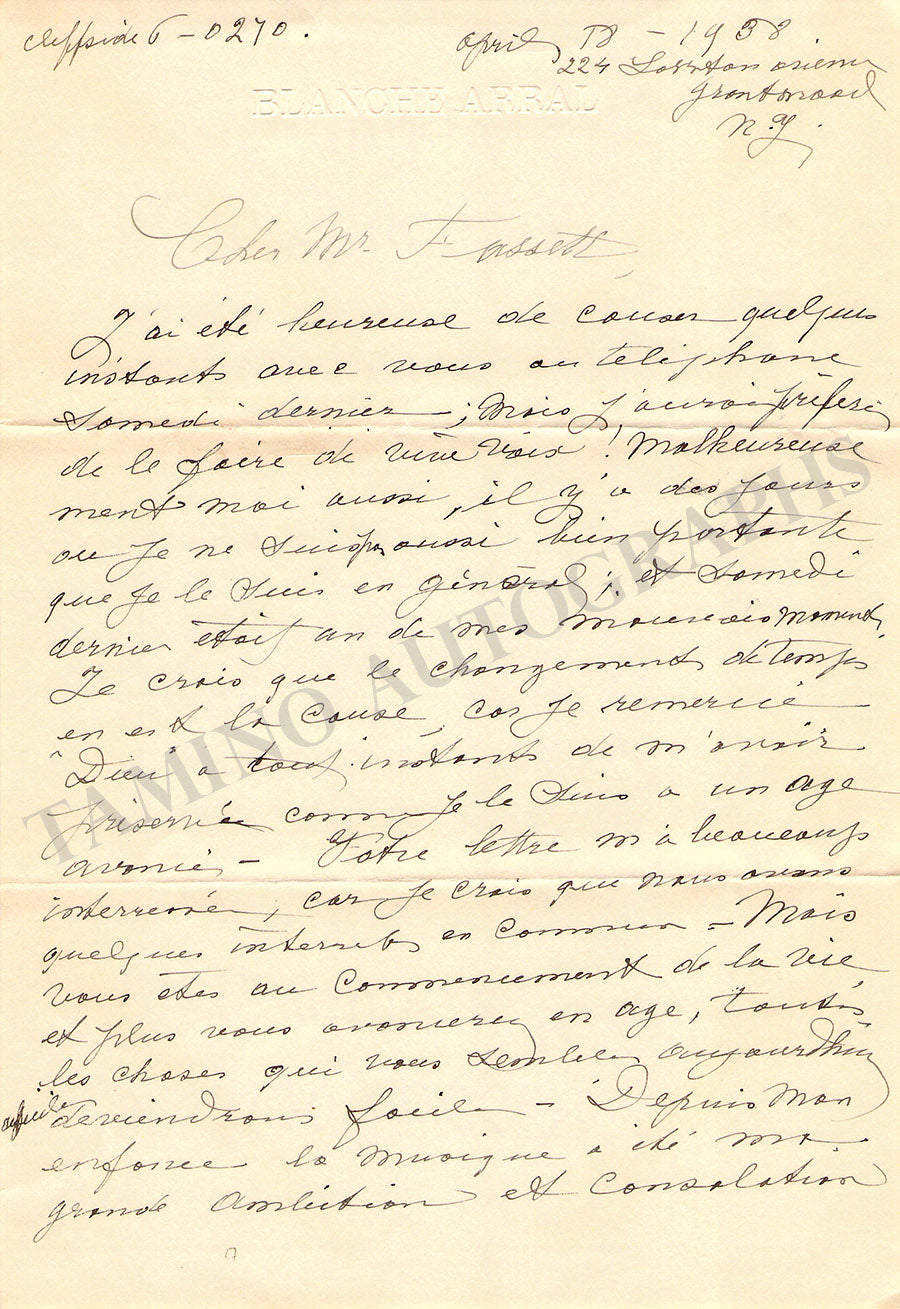 Cliffside 6 - 0270.
April 18 - 1938
224
Grantwood
N.J.
BLANCHE ARRAL
Cher Mr Fassett,
J'ai été heureuse de causer quelques
instants avec vous au téléphone
samedi dernier ; Mais j'aurai préféré
de le faire de vive voix ! Malheureuse
ment moi aussi, il y'a des jours
ou je ne suis pas aussi bien portante
que je le suis en général ; et samedi
dernier était un de mes mauvais moments,
Je crois que le changement de temps
en est la cause, car je remercie
"Dieu" a tout instants de m'avoir
préservée comme je le suis a un age
avancé - Votre lettre m'a beaucoup
interressée, car je crois que nous avons
quelques interrets en commun - Mais
vous etes au commencement de la vie
et plus vous avancerez en age, toutes
les choses qui vous semble aujourd'hui
difficile deviendrons facile - Depuis Mon
enfance la musique a été ma
grande ambition et consolation
TAMINO AUTOGRAPHS